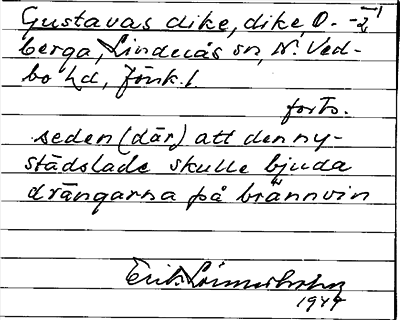 Gustavas dike, dike, O. -2¹
berga, Linderås sn, N. Ved-
bo hd, Jönk. l.
forts.
seden (där) att den ny-
städslade skulle bjuda
drängarna på brännvin
Erik
1949